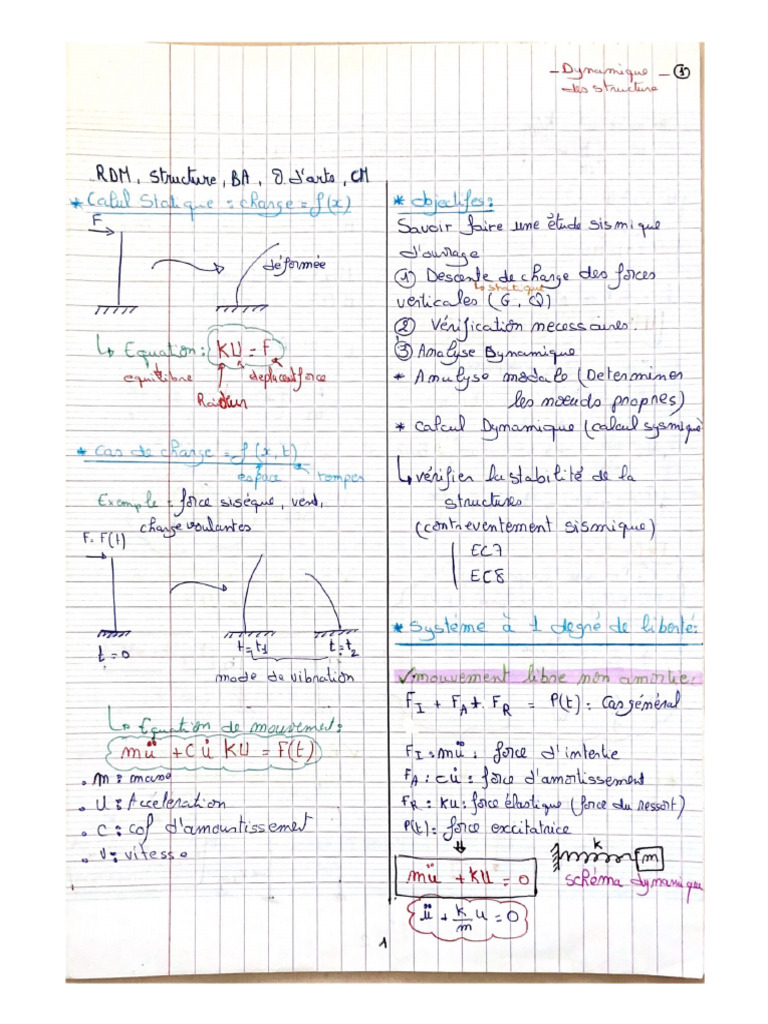 - Dynamique - ①
des structure
RDM, Structure, BA, O. d'arts, CM
* Calcul Statique : charge = f(x)
F
déformée
↳ Equation : KU = F
equilibre
deplacent force
* Cas de charge = f(x,t)
espace
Exemple : force sisèque, vent,
charge roulantes
F = F(t)
t = 0
t = t1
t = t2
mode de vibration
↳ Equation de mouvement :
mü + Cu̇ KU = F(t)
. m : masse
. U : Accéleration
. C : cof d'amourtissement
. v : vitesse
* objectifes :
Savoir faire une étude sismique
d'ouvrage
① Descente de charge des forces
↳ statique
verticales (G, Q)
② Vérification necessaires.
③ Analyse Dynamique
* Analyse modale (Determiner
les noeuds propres)
* Calcul Dynamique (calcul sysmique
↳ vérifier la stabilité de la
structures
(contreventement sismique)
EC7
EC8
* Système à 1 degré de liberté :
✓ mouvement libre non amortie :
F_I + F_A + F_R = P(t) : Cas général
F_I = mü : force d'intertie
F_A : cu̇ : force d'amortissement
F_R : ku : force élastique (force du ressort)
P(t) : force excitatrice
⇓
mü + KU = 0
k
m
schéma dynamique
ü + k/m u = 0
1